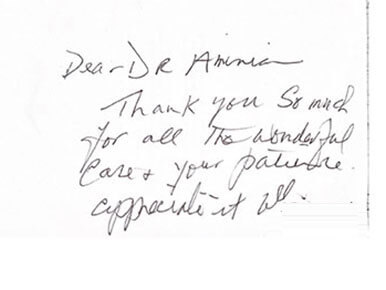 Dear DR Aminian
Thank you So much
for all The wonderful
Care + your patience.
appreciate it all.